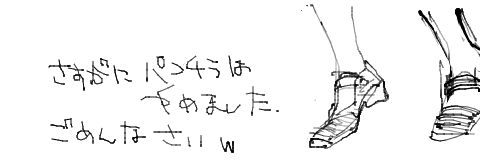 さすがにパンチラは
やめました.
ごめんなさいw